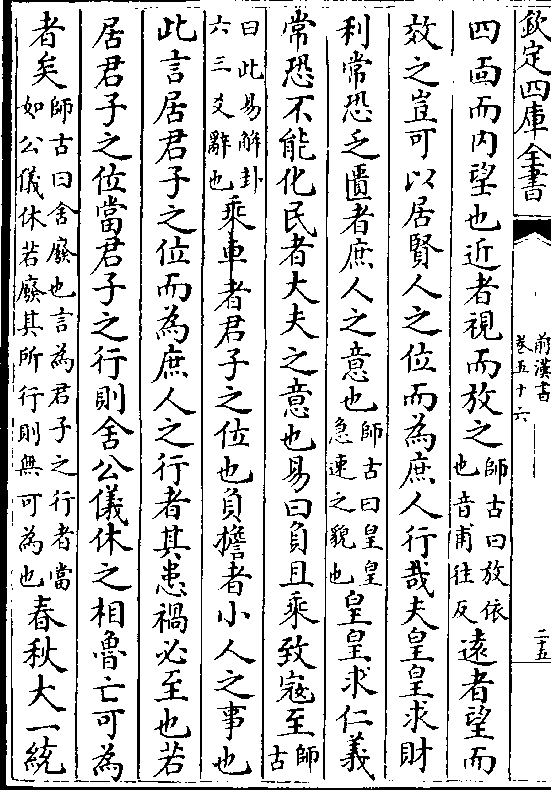 欽定四庫全書
前漢書
卷五十六
二五
四面而内望也近者視而放之師古曰放依也音甫往反逺者望而
效之豈可以居賢人之位而為庶人行哉夫皇皇求財
利常恐乏匱者庶人之意也師古曰皇皇急速之貌也皇皇求仁義
常恐不能化民者大夫之意也易曰負且乘致寇至師古
曰此易解卦六三爻辭也乘車者君子之位也負擔者小人之事也
此言居君子之位而為庶人之行者其患禍必至也若
居君子之位當君子之行則舍公儀休之相魯亡可為
者矣師古曰舍廢也言為君子之行者當如公儀休若廢其所行則無可為也春秋大一統